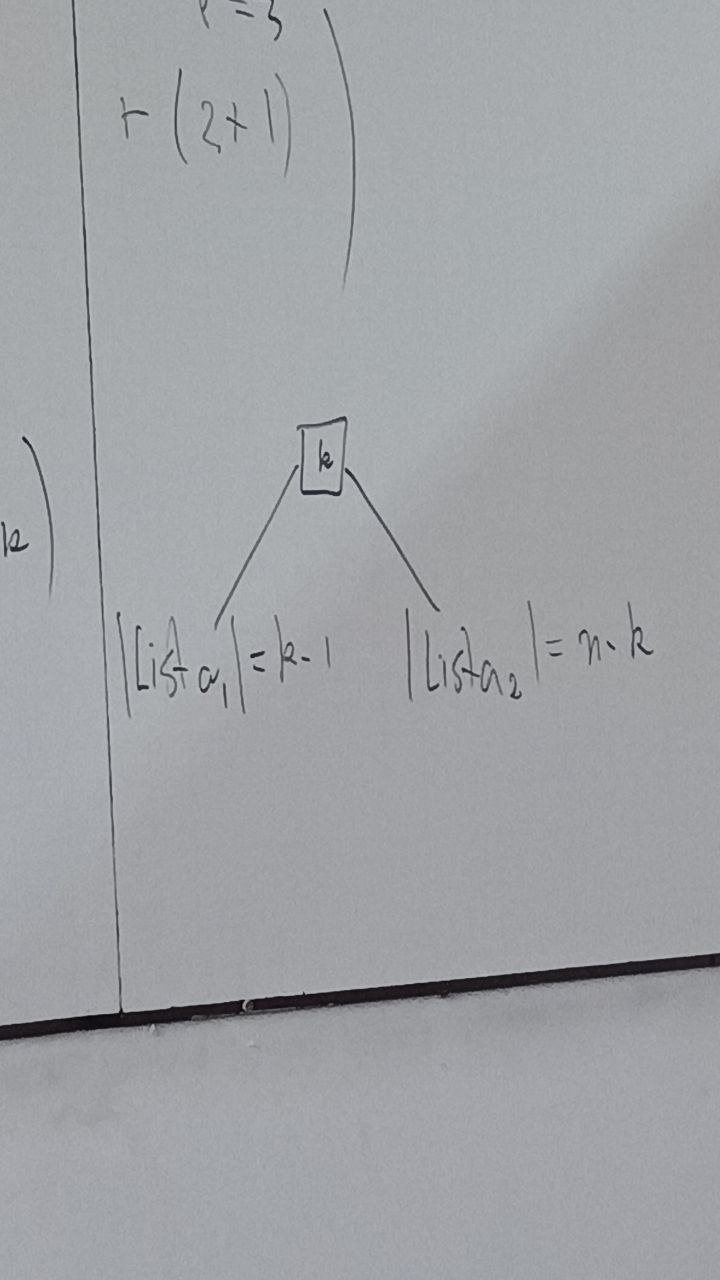 = 3
+ (2+1) )
k
k )
|Lista₁| = k-1 |Lista₂| = n-k